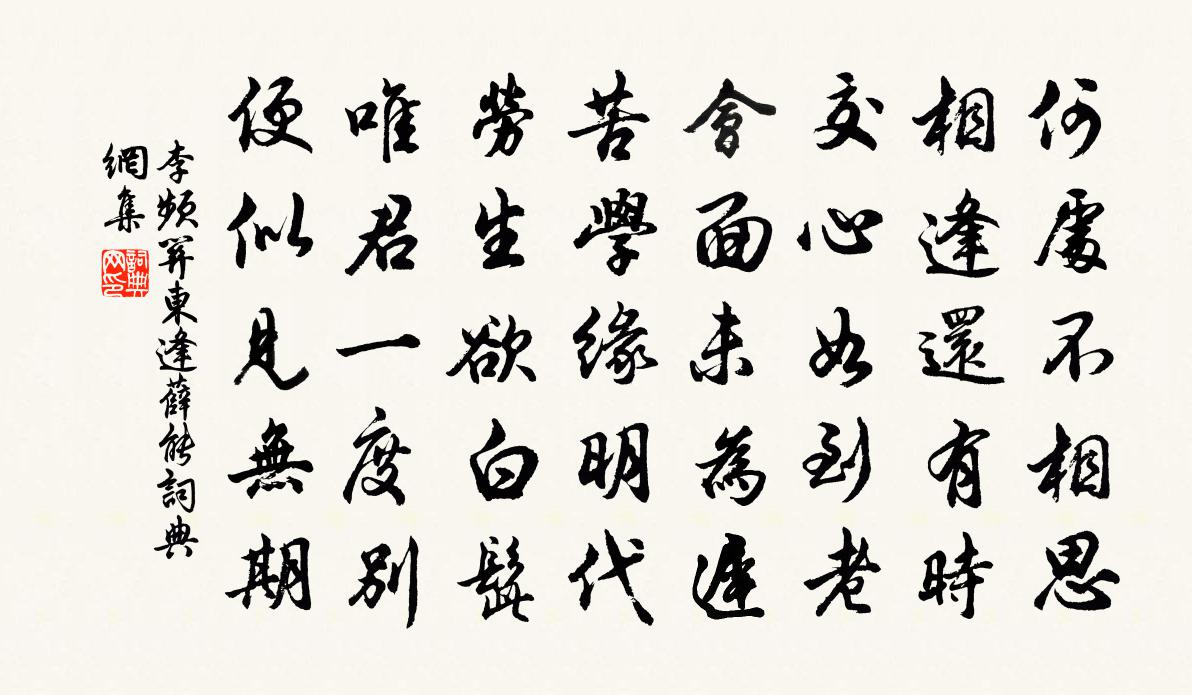 何處不相思
相逢還有時
交心如到老
會面未為遲
苦學緣明代
勞生欲白髭
唯君一度別
便似見無期
李頻筓東逢薛能詞典
網集
詞典
网印